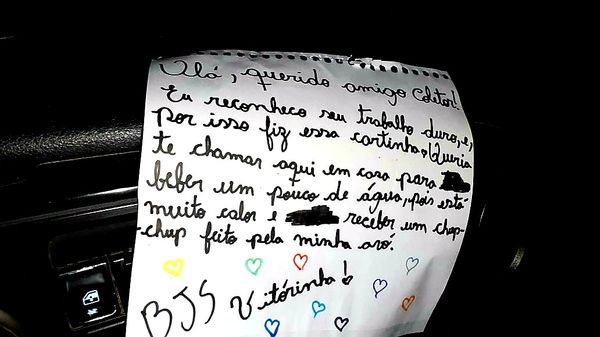 Olá, querido amigo Coletor!
Eu reconheço seu trabalho duro, e,
por isso fiz essa cartinha. Queria
te chamar aqui em casa para
beber um pouco de água, pois está
muito calor e receber um chup-
-chup feito pela minha avó.
BJS Vitórinha!